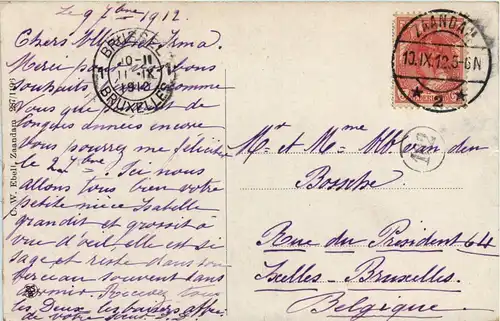 Le 9 7bre 1912.
Chers Albert et Irma.
Merci pour vos bons
souhaits
vous que de
longues années encore
vous pourrez me féliciter
le 2 7bre. Ici nous
allons tous bien votre
petite nièce Isabelle
grandit et grossit à
vue d'œil, elle est si
sage et reste dans son
berceau souvent dans
dormir. Recevez tous
les Deux les baisers
de votre sœur
C. W. Ebel, Zaandam
BRUSSEL
10-11
11 IX
1912
BRUXELLES
ZAANDAM
10.IX.12.5-6N
* 2 *
Mr et Mme Alb van den
Bossche
Rue du Président 64
Ixelles-Bruxelles.
Belgique.